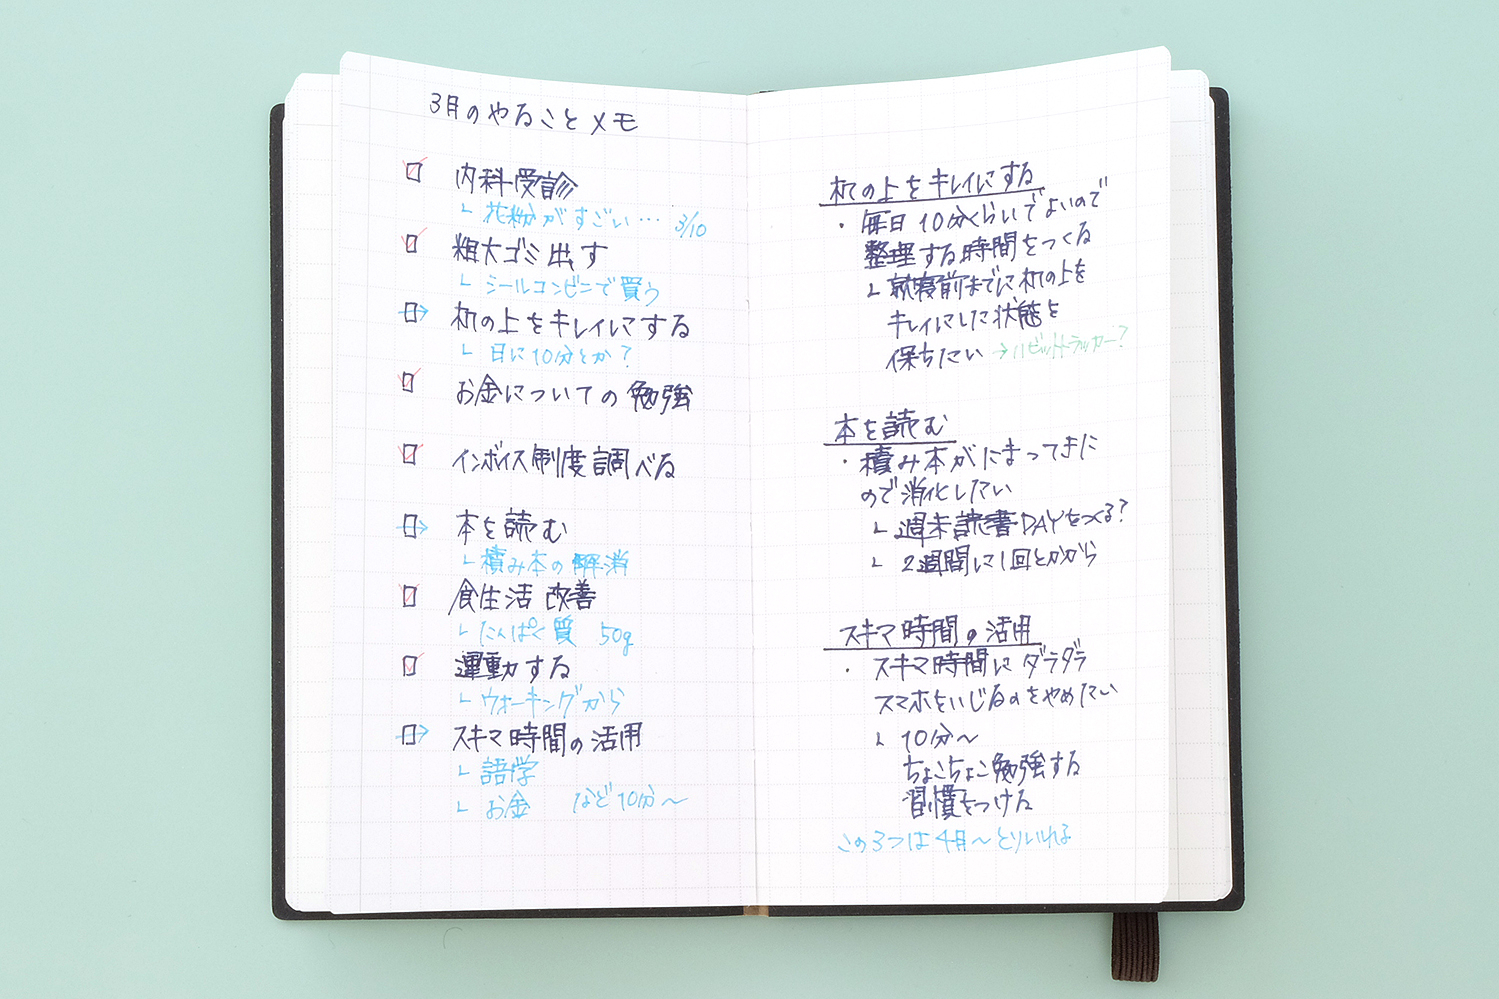 3月のやることメモ
内科受診
└ 花粉がすごい… 3/10
粗大ゴミ出す
└ シールコンビニで買う
机の上をキレイにする
└ 日に10分とか?
お金についての勉強
インボイス制度調べる
本を読む
└ 積み本の解消
食生活改善
└ たんぱく質 50g
運動する
└ ウォーキングから
スキマ時間の活用
└ 語学
└ お金 など10分〜
机の上をキレイにする
・毎日10分くらいでよいので
整理する時間をつくる
└ 就寝前までに机の上を
キレイにした状態を
保ちたい →ハビットトラッカー?
本を読む
・積み本がたまってきた
ので消化したい
└ 週末読書DAYをつくる?
└ 2週間に1回とかから
スキマ時間の活用
・スキマ時間にダラダラ
スマホをいじるのをやめたい
└ 10分〜
ちょこちょこ勉強する
習慣をつける
この3つは4月〜とりいれる